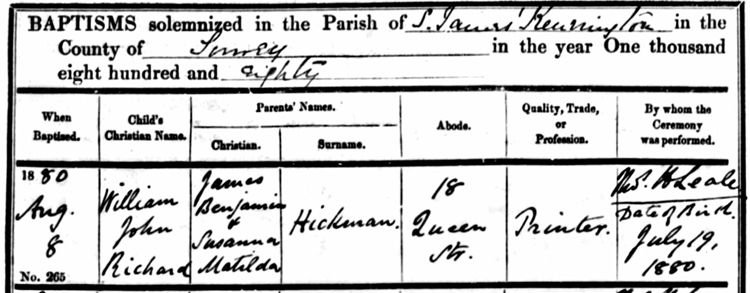 BAPTISMS solemnized in the Parish of S. James' Kennington in the
County of Surrey in the year One thousand
eight hundred and eighty
When Baptised.
Child's Christian Name.
Parents' Names.
Christian.
Surname.
Abode.
Quality, Trade, or Profession.
By whom the Ceremony was performed.
1880
Aug.
8
No. 265
William
John
Richard
James
Benjamin
&
Susanna
Matilda
Hickman.
18
Queen
Str.
Printer.
Leale
Date of Birth.
July 19,
1880.